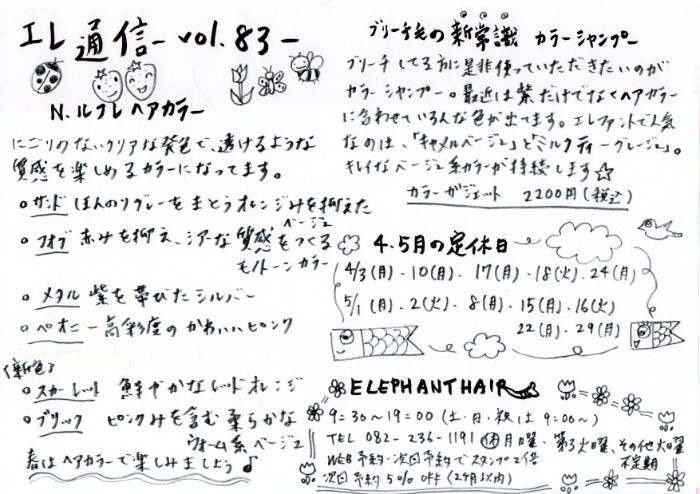 エレ通信 - vol.83 -
N.ルフレヘアカラー
にごりのないクリアな発色で、透けるような
質感を楽しめるカラーになってます。
○サンド ほんのりグレーをまとうオレンジみを抑えた
ベージュ
○フォグ 赤みを抑え、シアーな質感をつくる
モノトーンカラー
○メタル 紫を帯びたシルバー
○ペオニー 高彩度のかわいいピンク
(新色)
○スカーレット 鮮やかなレッドオレンジ
○ブリック ピンクみを含む柔らかな
ウォーム系ベージュ
春はヘアカラーで楽しみましょう♪
ブリーチ毛の新常識 カラーシャンプー
ブリーチしてる方に是非使っていただきたいのが
カラーシャンプー。最近は紫だけでなくヘアカラー
に合わせていろんな色が出てます。エレファントで人気
なのは、「キャメルベージュ」と「ミルクティーグレージュ」。
キレイなベージュ系カラーが持続します☆
カラーガジェット 2200円(税込)
4.5月の定休日
4/3(月)、10(月)、17(月)・18(火)、24(月)
5/1(月)、2(火)、8(月)、15(月)、16(火)
22(月)、29(月)
ELEPHANT HAIR
9:30~19:00 (土・日・祝は9:00~)
TEL 082-236-1191 休 月曜、第3火曜、その他火曜
不定期
WEB予約・次回予約でスタンプ2倍
次回予約5%OFF(2ヶ月以内)